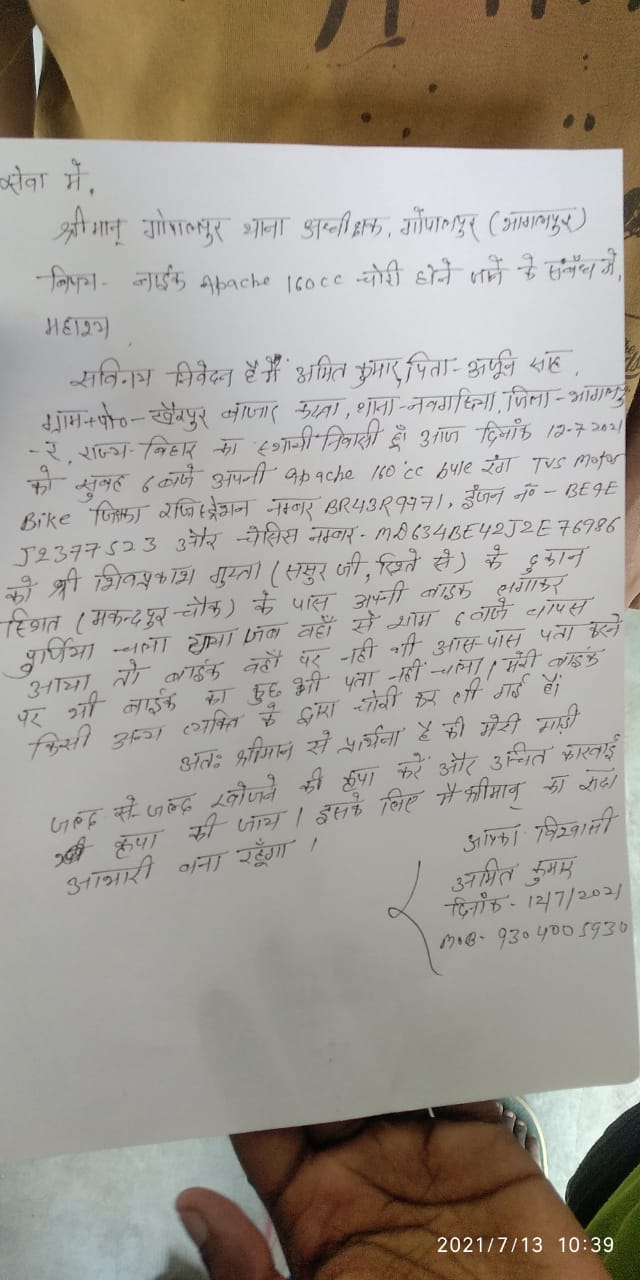 सेवा में,
श्रीमान् गोपालपुर थाना अध्यीक्षक, गोंपालपुर (भागलपुर)
विषय- बाईक Apache 160cc चोरी होने जाने के संबंध में,
महाश्य
सविनय निवेदन है मैं अमित कुमार, पिता- अर्जून साह,
ग्राम+पो०- खैरपुर बाजार कस्बा, थाना- नवगछिया, जिला- भागलपु
-र, राज्य- बिहार का स्थायी निवासी हूँ। आज दिनांक 12-7-2021
को सुबह 6 बजे अपनी apache 160cc blue रंग TVS Motor
Bike जिसका रजिस्ट्रेशन नम्बर BR43R9771, इंजन नं०- BE4E
J2377523 और चेसिस नम्बर- MD634BE42J2E76986
को श्री शिवप्रकाश गुप्ता (ससुर जी, रिश्ते से) के दुकान
स्थित (मकन्दपुर-चौक) के पास अपनी बाइक लगाकर
पुर्णिया चला गया। जब वहाँ से शाम 6 बजे वापस
आया तो बाइक वहाँ पर नही थी आस-पास पता करने
पर भी बाईक का कुछ भी पता नहीं चला। मेरी बाइक
किसी अन्य व्यक्ति के द्वारा चोरी कर ली गई है।
अतः श्रीमान से प्रार्थना है की मेरी गाड़ी
जल्द से-जल्द खोजने की कृपा करें और उचित कारवाई
कृपा की जाय। इसके लिए मैं श्रीमान् का सदा
आभारी बना रहूँगा।
आपका विश्वासी
अमित कुमार
दिनांक- 12/7/2021
MOB- 9304005930
2021/7/13 10:39